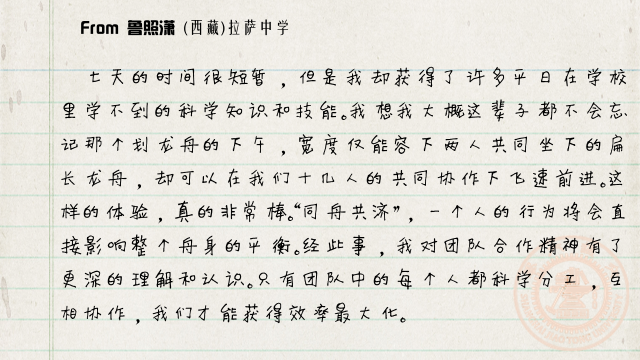 From 鲁照潇 (西藏)拉萨中学
七天的时间很短暂，但是我却获得了许多平日在学校
里学不到的科学知识和技能。我想我大概这辈子都不会忘
记那个划龙舟的下午，宽度仅能容下两人共同坐下的扁
长龙舟，却可以在我们十几人的共同协作下飞速前进。这
样的体验，真的非常棒。“同舟共济”，一个人的行为将会直
接影响整个舟身的平衡。经此事，我对团队合作精神有了
更深的理解和认识。只有团队中的每个人都科学分工，互
相协作，我们才能获得效率最大化。